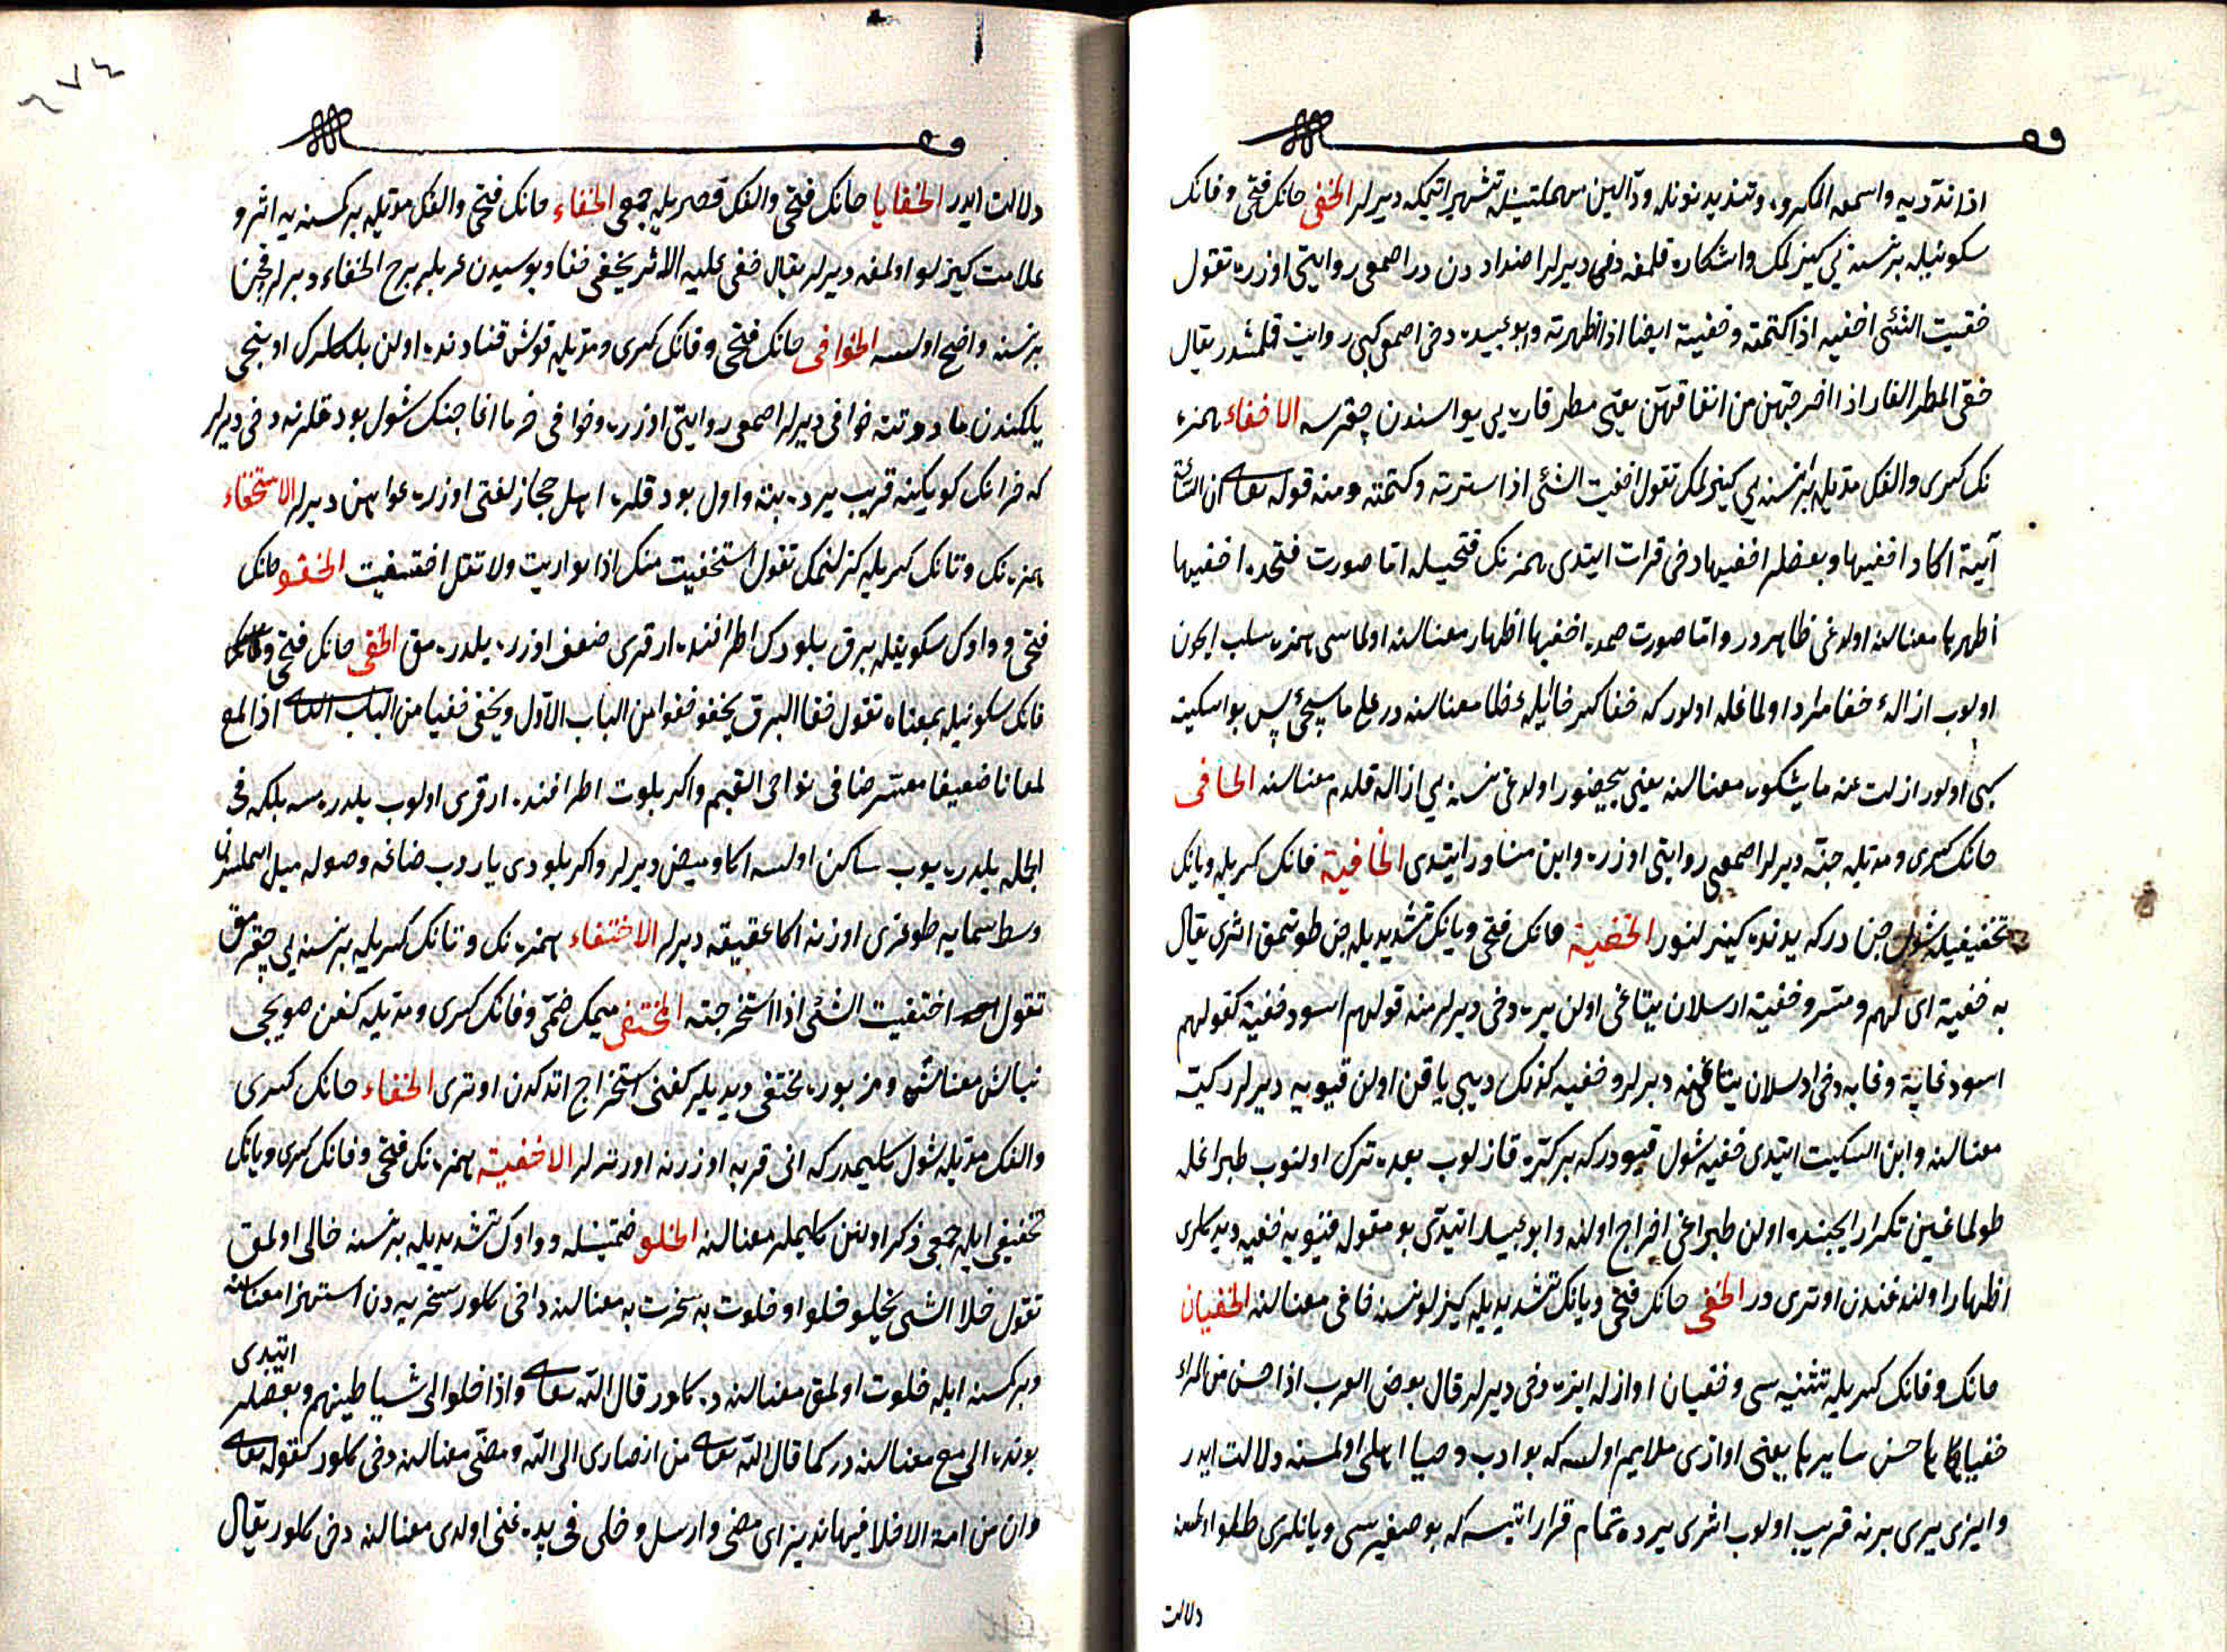 اذا ندّد به واسمعه المكروه وتنديد نونله ودالين مهملتينله تشهير ايتمكه ديرلر الخفى خانك فتحى وفانك
سكونيله بر نسنه يى كيزلمك واشكاره قلمغه دخى ديرلر اضداددن در اصمعى روايتى اوزره تقول
خفيت الشئى اخفيه اذا كتمته وخفيته ايضا اذا اظهرته وابو عبيده دخى اصمعى كبى روايت قلمشدر يقال
خفى المطر الفار اذا اخرجهن من انفاقهن يعنى مطر فاره يى يواسندن چقرسه الاخفاء همزه
نك كسرى والفك مدّيله بر نسنه يى كيزلمك تقول اخفيت الشئى اذا سترته وكتمته ومنه قوله تعالى ان الساعة
آتية اكاد اخفيها وبعضلر اخفيها دخى قرات ايتدى همزه نك فتحيله اما صورت فتحده اخفيها
اظهرها معناسنه اولدغى ظاهردر واما صورت ضمده اخفيها اظهار معناسنه اولماسى همزه سلب ايچون
اولوب ازالهٔ خفا مراد اولماغله اولور كه خفا كسر خائيله غطا معناسنه در على ما سيجئ پس بو اسكيته
كبى اولور ازلت عنه ما يشكوه معناسنه يعنى بيحضور اولدغى نسنه يى ازاله قلدم معناسنه الخافى
خانك كسرى ومدّيله جنّه ديرلر اصمعى روايتى اوزره وابن مناور ايتدى الخافية فانك كسريله ويانك
تخفيفيله شول جن در كه بدنده كيزلنور الخفية خانك فتحى ويانك تشديديله جن طوتمق اثرى يقال
به خفية اى لهم ومتسر وخفية ارسلان يتاغى اولن يره دخى ديرلر منه قولهم اسود خفية كقولهم
اسود غابة وغابه دخى ارسلان يتاغنه ديرلر وخفيه كزنك ديبى ياقن اولن قيويه ديرلر ركيّه
معناسنه وابن السكيت ايتدى خفيه شول قيودر كه بر كرّه قازلوب بعده ترك اولنوب طپراغله
طولماغين تكرار ايچنده اولن طپراغى اخراج اولنه وابو عبيد ايتدى بو مقوله قيويه خفيه ديدكلرى
اظهار اولندغندن اوترى در الخفى خانك فتحى ويانك تشديديله كيزلو نسنه خافى معناسنه الخفيان
خانك وفانك كسريله تثنيه سى وخفيان اوازله ايزه دخى ديرلر قال بعض العرب اذا حسن من المراة
خفياها حسن سايرها يعنى اوازى ملايم اولسه كه بو ادب وحيا اهلى اولمسنه دلالت ايدر
وايزى يرى برنه قريب اولوب اثرى يرده تمام قرار اتسه كه بو صغيرسى ويانلرى طلو اولمسنه
دلالت
دلالت ايدر الخفايا خانك فتحى والفك قصريله جمعى الخفاء خانك فتحى والفك مدّيله بر كسنه يه اثر و
علامت كيزلو اولمغه ديرلر يقال خفى عليه الاثر يخفى خفاء وبو سيدن عربلر برح الخفاء ديرلر قچن
بر نسنه واضح اولسه الخوافى خانك فتحى وفانك كسرى ومدّيله قوش قنادنده اولن يلكلرك اوننجى
يلكندن ما دونته خوافى ديرلر اصمعى روايتى اوزره وخوافى خرما اغاجنك شول بوداقلرنه دخى ديرلر
كه خرانك كوبكينه قريب يرده بته واول بوداقلره اهل حجاز لغتى اوزره عواهن ديرلر الاستخفاء
همزه نك وتانك كسريله كزلنمك تقول استخفيت منك اذا تواريت ولا تقل اختفيت الخفو خانك
فتحى وواوك سكونيله برق بلودك اطرافنده ارقرى ضعف اوزره يلدرمق الخفى خانك فتحى
فانك سكونيله بمعناه تقول خفا البرق يخفو خفوا من الباب الاول ويخفى خفيا من الباب الثانى اذا لمع
لمعانا ضعيفا معترضا فى نواحى الغيم واكر بلوت اطرافنده ارقرى اولوب يلدرمسه بلكه فى
الجمله يلدريوب ساكن اولسه اكا وميض ديرلر واكر بلودى ياروب صاغه وصوله ميل اتمسندن
وسط سمايه طوغرى اوزنه اكا عقيقه ديرلر الاختفاء همزه نك وتانك كسريله بر نسنه يى چقرمق
تقول اختفيت الشئى اذا استخرجته المختفى ميمك ضمى وفانك كسرى ومدّيله كفن صويجى
نباش معناسنه ومزبوره مختفى ديديلر كفنى استخراج اتدكدن اوترى الخفاء خانك كسرى
والفك مدّيله شول كليمدر كه انى قربه اوزرنه اورترلر الاخفية همزه نك فتحى وفانك كسرى ويانك
تخفيفى ايله جمعى ذكر اولنن كليملر معناسنه الخلو ضمتينله وواوك تشديديله بر نسنه خالى اولمق
تقول خلا الشى يخلو خلوا وخلوت به سخرت به معناسنه دخى كلور سخريه دن استهزا معناسنه
وبر كسنه ايله خلوت اولمق معناسنه ده كلور قال الله تعالى واذا خلوا الى شياطينهم وبعضلر ايتدى
بونده الى مع معناسنه در كما قال الله تعالى من انصارى الى الله ومضى معناسنه دخى كلور كقوله تعالى
وان من امة الا خلا فيها نذير اى مضى وارسل وخلى فى يده غنى اولدى معناسنه دخى كلور يقال